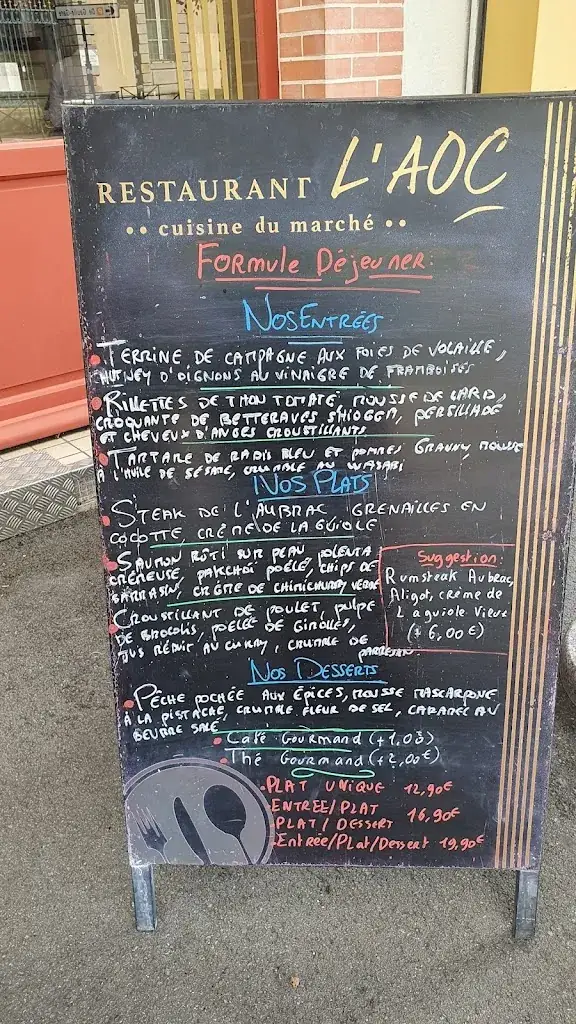 RESTAURANT L'AOC
•• cuisine du marché ••
Formule Déjeuner:
Nos Entrées
• Terrine de campagne aux foies de volaille,
d'oignons au vinaigre de framboises
• Rillettes de thon tomaté, mousse de lard,
croquante de betteraves shiogga, persillade
et cheveux d'anges croustillants
• Tartare de radis bleu et pommes Granny, mousse
à l'huile de sesame, crumble au wasabi
Nos Plats
• Steak de l'Aubrac grenailles en
cocotte, crème de la guiole
• Saumon rôti sur peau, polenta
crémeuse, pakchoï poêlé, chips de
sarrasin, crème de chimichurry verde
• Croustillant de poulet, pulpe
de brocolis, poêlée de girolles,
jus réduit au curry, crumble de
parmesan
Suggestion:
Rumsteak Aubrac,
Aligot, crème de
Laguiole Vieux
(+ 6,00€)
Nos Desserts
• Pêche pochée aux épices, mousse mascarpone
à la pistache, crumble fleur de sel, caramel au
beurre salé
• Café Gourmand (+1.03)
Thé Gourmand (+2,00€)
• Plat unique 12,90€
• Entree/Plat
Plat/Dessert 16,90€
• Entrée/Plat/Dessert 19,90€